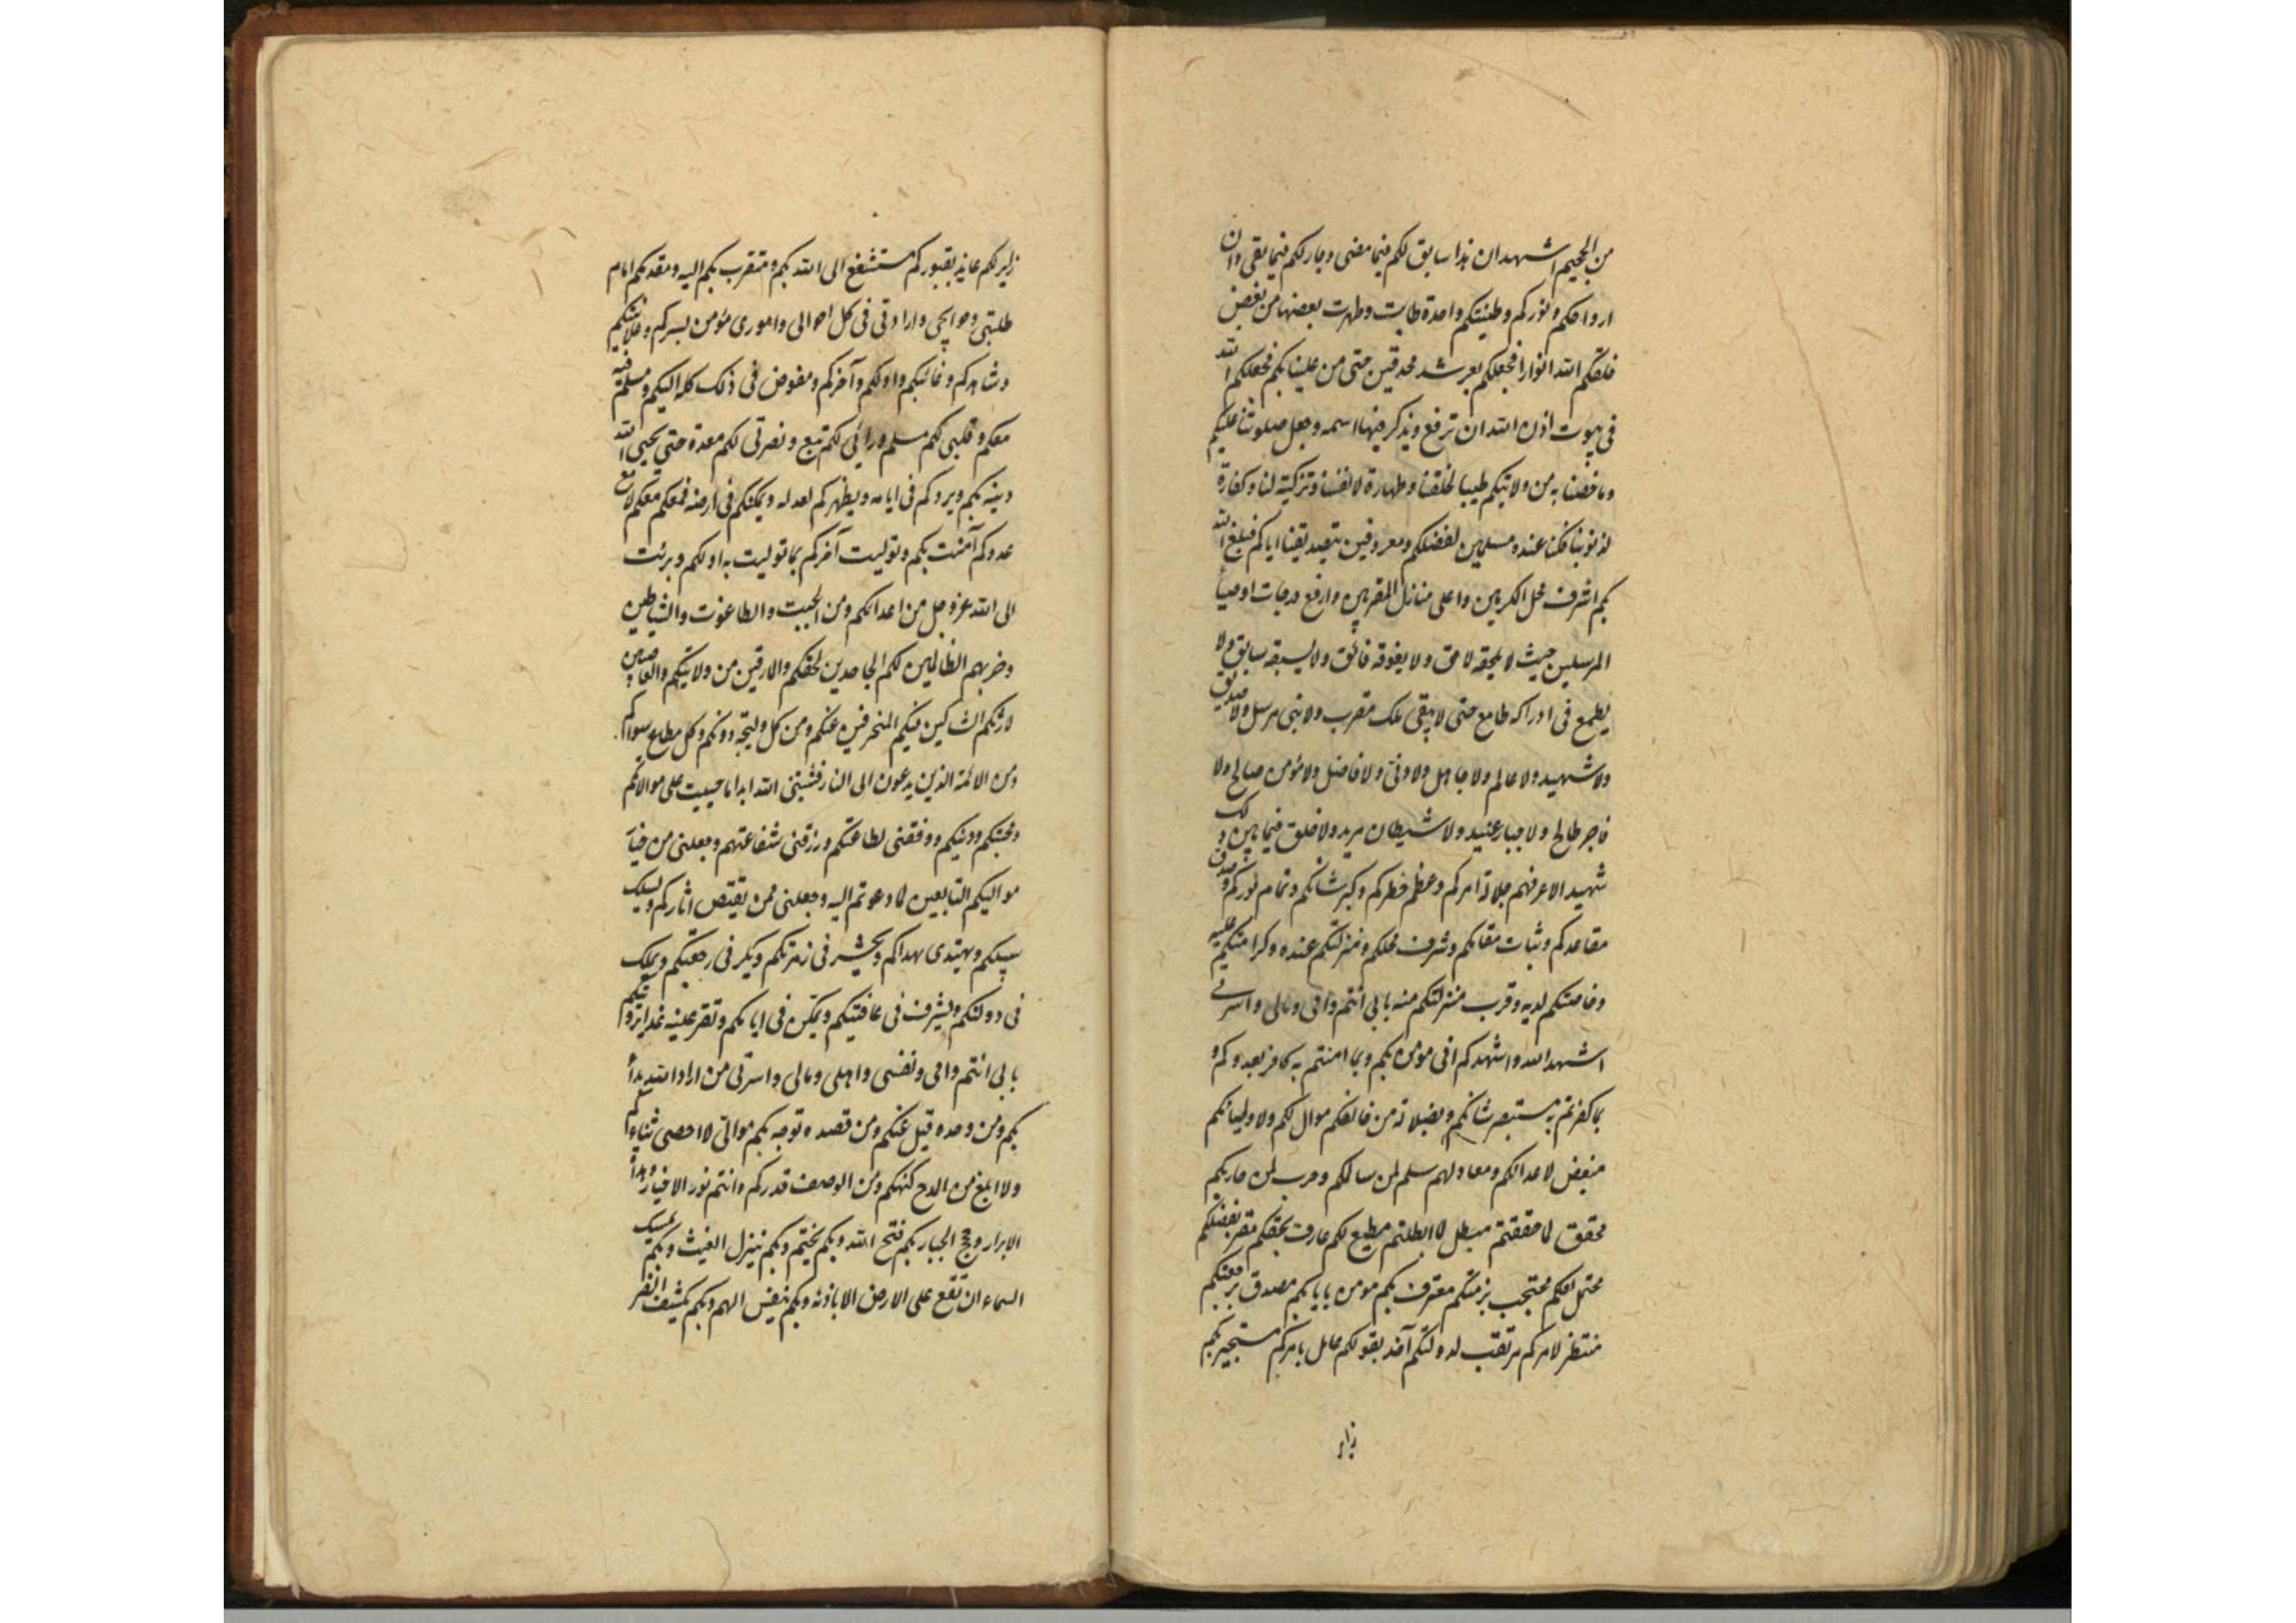 من الجحيم اشهد ان هذا سابق لكم فيما مضى وجار لكم فيما بقى وان
ارواحكم ونوركم وطينتكم واحدة طابت وطهرت بعضها من بعض
خلقكم الله انوارا فجعلكم بعرشه محدقين حتى من علينا بكم فجعلكم الله
فى بيوت اذن الله ان ترفع ويذكر فيها اسمه وجعل صلوتنا عليكم
وما خصنا به من ولايتكم طيبا لخلقنا وطهارة لانفسنا وتزكية لنا وكفارة
لذنوبنا فكنا عنده مسلمين لفضلكم ومعروفين بتصديقنا اياكم فبلغ الله
بكم اشرف محل المكرمين واعلى منازل المقربين وارفع درجات اوصيا
المرسلين حيث لا يلحقه لاحق ولا يفوقه فائق ولا يسبقه سابق ولا
يطمع فى ادراكه طامع حتى لا يبقى ملك مقرب ولا نبى مرسل ولا صديق
ولا شهيد ولا عالم ولا جاهل ولا دنى ولا فاضل ولا مؤمن صالح ولا
فاجر طالح ولا جبار عنيد ولا شيطان مريد ولا خلق فيما بين ذلك
شهيد الا عرفهم جلالة امركم وعظم خطركم وكبر شانكم وتمام نوركم وصدق
مقاعدكم وثبات مقامكم وشرف محلكم ومنزلتكم عنده وكرامتكم عليه
وخاصتكم لديه وقرب منزلتكم منه بابى انتم وامى ومالى واسرتى
اشهد الله واشهدكم انى مومن بكم وبما امنتم به كافر بعدوكم و
بما كفرتم به مستبصر بشانكم وبضلالة من خالفكم موال لكم ولاوليائكم
مبغض لاعدائكم ومعاد لهم سلم لمن سالمكم وحرب لمن حاربكم
محقق لما حققتم مبطل لما ابطلتم مطيع لكم عارف بحقكم مقر بفضلكم
محتمل لعلمكم محتجب بذمتكم معترف بكم مومن بايابكم مصدق برجعتكم
منتظر لامركم مرتقب لدولتكم آخذ بقولكم عامل بامركم مستجير بكم
زاير
زاير لكم عايذ بقبوركم مستشفع الى الله بكم ومتقرب بكم اليه ومقدمكم امام
طلبتى وحوايجى وارادتى فى كل احوالى وامورى مؤمن بسركم وعلانيتكم
وشاهدكم وغائبكم واولكم وآخركم ومفوض فى ذلك كله اليكم ومسلم فيه
معكم وقلبى لكم مسلم ورائى لكم تبع ونصرتى لكم معدة حتى يحيى الله
دينه بكم ويردكم فى ايامه ويظهركم لعدله ويمكنكم فى ارضه فمعكم معكم لا مع
عدوكم آمنت بكم وتوليت آخركم بما توليت به اولكم وبرئت
الى الله عز وجل من اعدائكم ومن الجبت والطاغوت والشياطين
وحزبهم الظالمين لكم الجاحدين لحقكم والمارقين من ولايتكم والغاصبين
لارثكم الشاكين فيكم المنحرفين عنكم ومن كل وليجة دونكم وكل مطاع سواكم
ومن الائمة الذين يدعون الى النار فثبتنى الله ابدا ما حييت على موالاتكم
ومحبتكم ودينكم ووفقنى لطاعتكم ورزقنى شفاعتهم وجعلنى من خيار
مواليكم التابعين لما دعوتم اليه وجعلنى ممن يقتص اثاركم ويسلك
سبيلكم ويهتدى بهداكم ويحشر فى زمرتكم ويكر فى رجعتكم ويملك
فى دولتكم ويشرف فى عافيتكم ويمكن فى ايامكم وتقر عينه غدا برؤيتكم
بابى انتم وامى ونفسى واهلى ومالى واسرتى من اراد الله بدأ
بكم ومن وحده قبل عنكم ومن قصده توجه بكم موالى لا احصى ثناءكم
ولا ابلغ من المدح كنهكم ومن الوصف قدركم وانتم نور الاخيار وهداة
الابرار وحجج الجبار بكم فتح الله وبكم يختم وبكم ينزل الغيث وبكم يمسك
السماء ان تقع على الارض الا باذنه وبكم ينفس الهم وبكم يكشف الضر